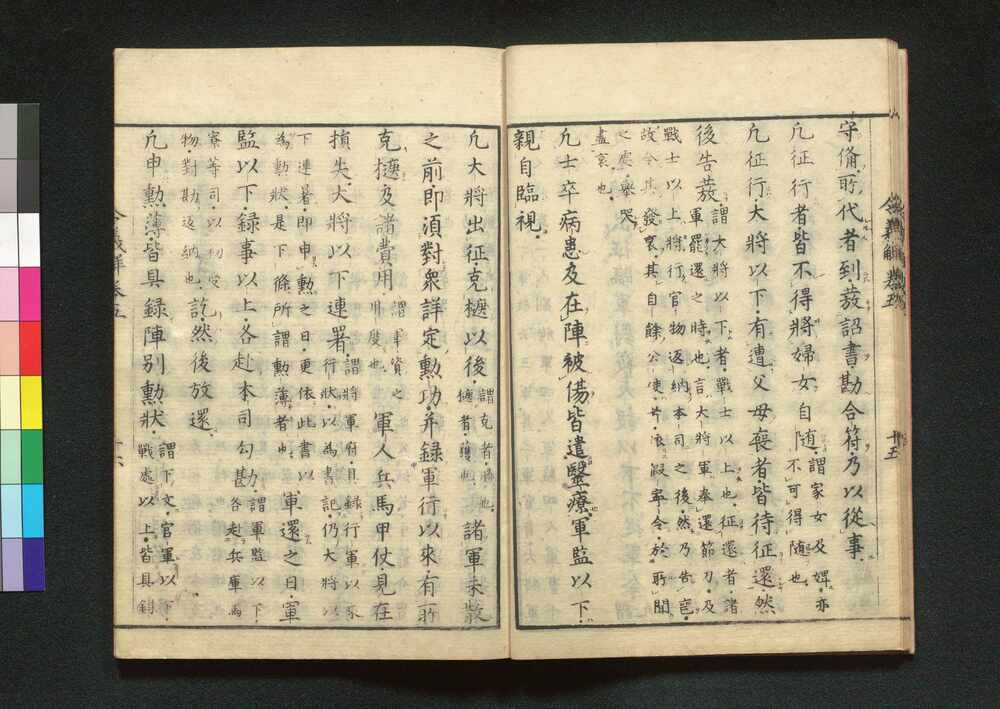 守備。所代者到。発詔書勘合符。乃以從事。
凢征行者。皆不得將婦女自随。謂。家女及婢。亦
不可得随也
凢征行。大將以下。有遭父母喪者。皆待征還。然
後告蕟。謂。大將以下者。戰士以上也。征還者。諸
軍罷還之時也。言大將軍。奉還節刀。及
戰士以上。將行官物返納本司之後。然乃告
故令其發哭。其自餘公使。
之處。舉哭
盡哀也
凢士卒病患。及在陣被傷。皆遣毉療。軍監以下。
親自臨視。
凢大將出征。克捷以後。謂。克者。勝也。
捷者。獲也 諸軍未散
之前。即湏對衆詳定勲功。并録軍行以來。有所
克捷。及諸費用。謂。軍資之
用度也 軍人兵馬甲仗。見在
損失。大將以下連署。謂。將軍府。具録行軍以來
行状。以為書記。仍大將以
下連署。即申勲之日。更依此書。以
為勲状。是下條所謂勲薄者也 軍還之日。軍
監以下。録事以上。各赴本司勾勘。謂。軍監以下
各赴兵庫馬
寮等司。以
物。對勘返納也 訖。然後放還。
凢申勲薄。皆具録陣別勲状。謂。下文。官軍以下。
戰處以上。皆具録
令義解巻五
十五
十六